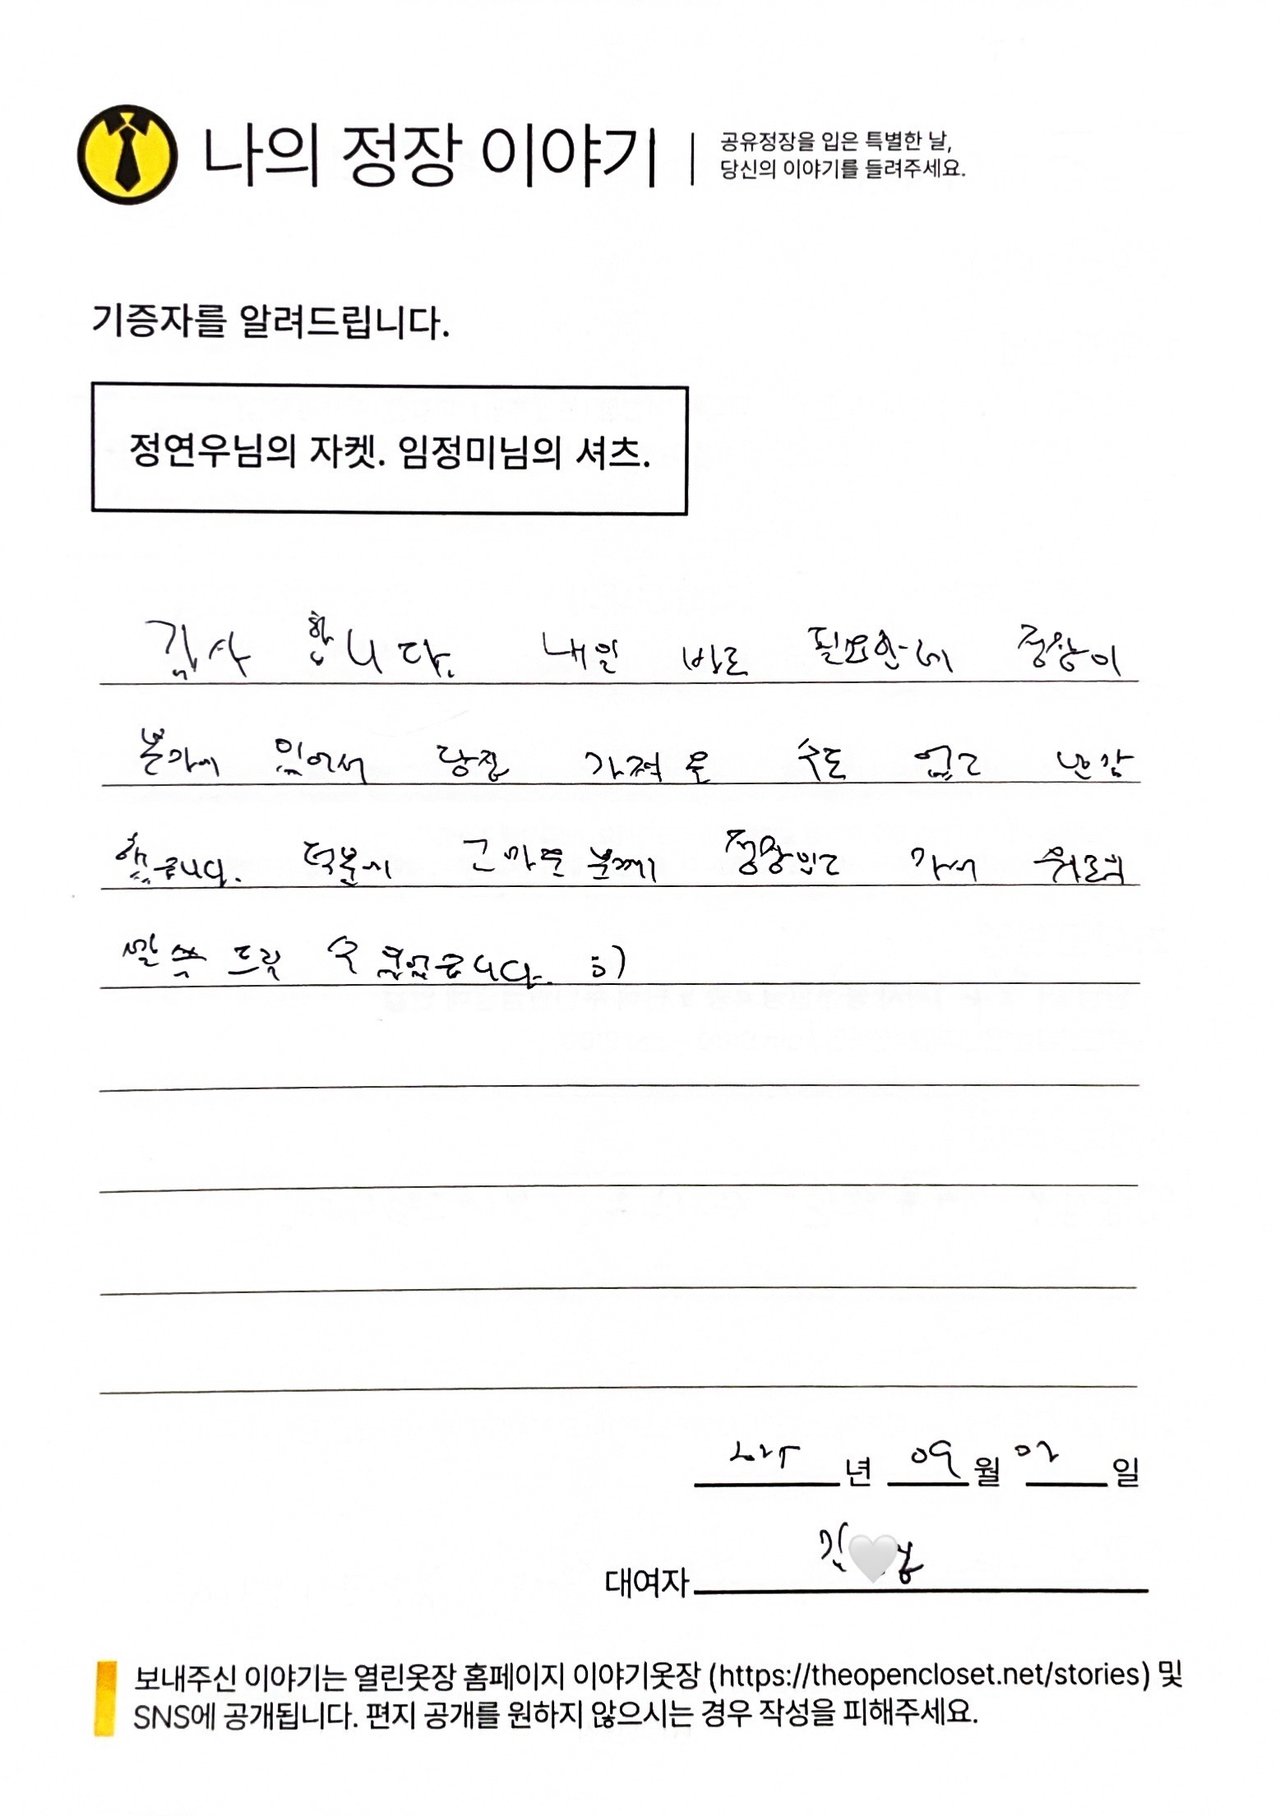 나의 정장 이야기
공유정장을 입은 특별한 날,
당신의 이야기를 들려주세요.
기증자를 알려드립니다.
정연우님의 자켓. 임정미님의 셔츠.
감사 합니다. 내일 바로 필요한데 정장이
본가에 있어서 당장 가져올 수도 없고 난감
했습니다. 덕분에 고마운 분께 정장입고 가서 위로의
말씀 드릴 수 있습니다. :)
년 09 월 02 일
대여자 김
보내주신 이야기는 열린옷장 홈페이지 이야기옷장 (https://theopencloset.net/stories) 및
SNS에 공개됩니다. 편지 공개를 원하지 않으시는 경우 작성을 피해주세요.